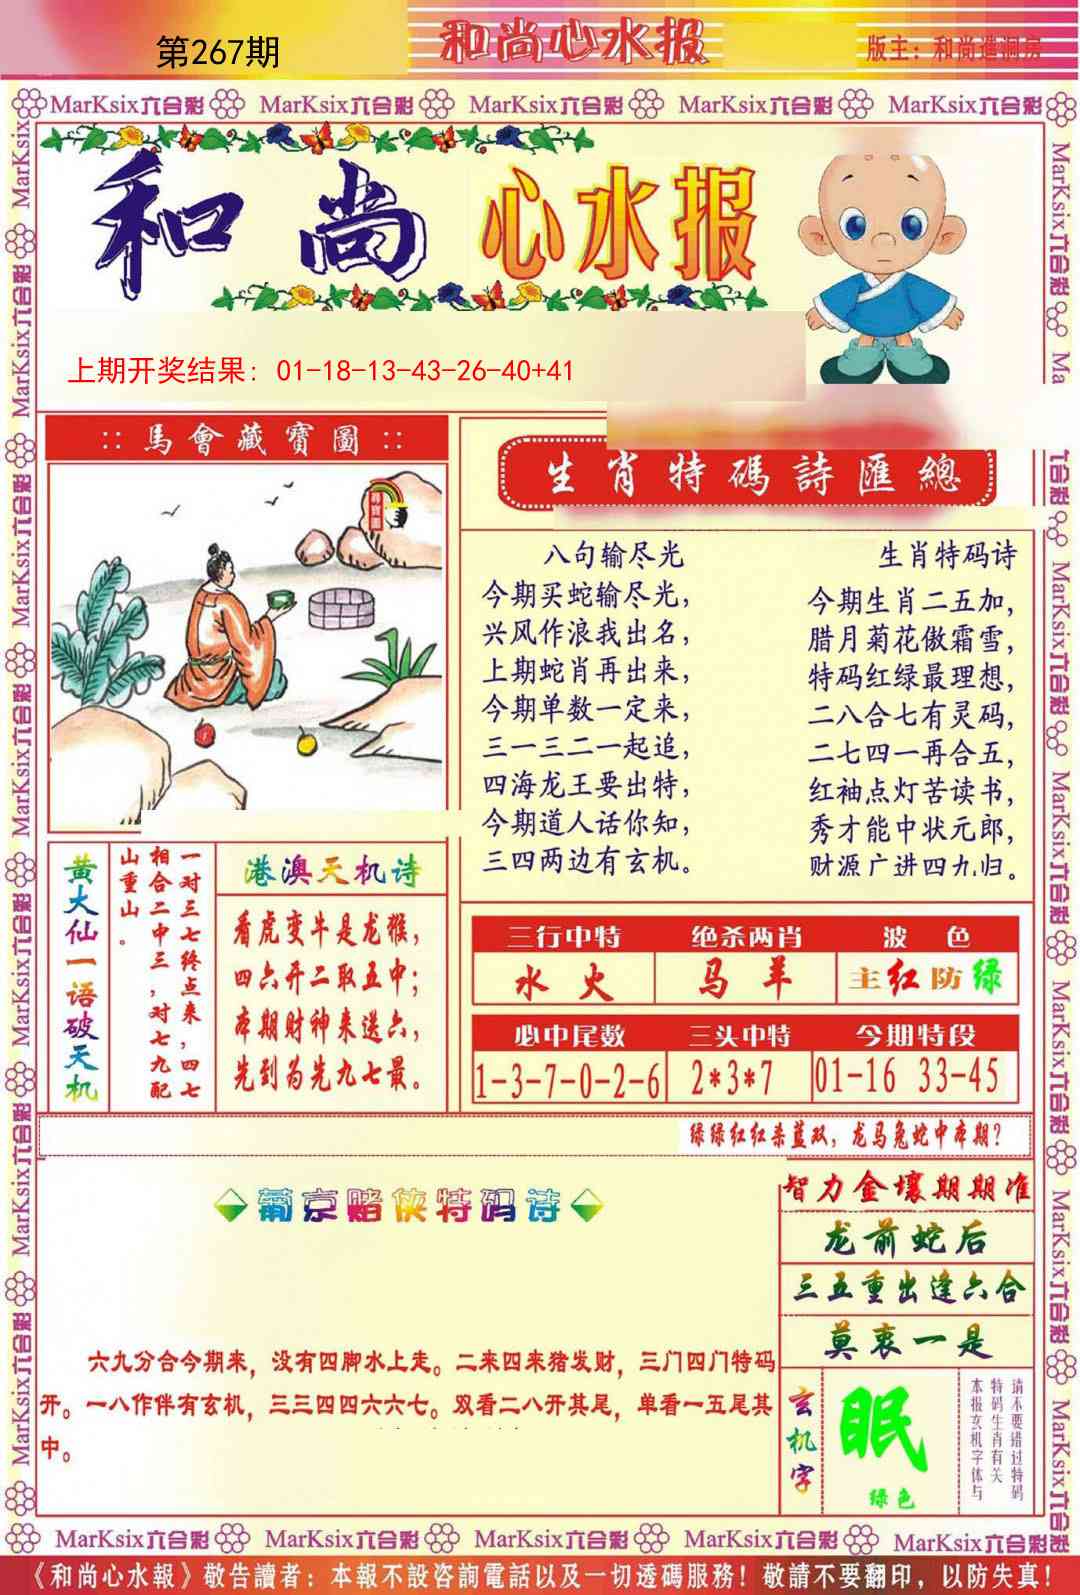 第267期
和尚心水报
版主：和尚造洞房
MarKsix六合彩 MarKsix六合彩 MarKsix六合彩 MarKsix六合彩 MarKsix六合彩
和尚心水报
上期开奖结果：01-18-13-43-26-40+41
::馬會藏寶圖::
生肖特碼詩匯總
八句输尽光
今期买蛇输尽光，
兴风作浪我出名，
上期蛇肖再出来，
今期单数一定来，
三一三二一起追，
四海龙王要出特，
今期道人话你知，
三四两边有玄机。
生肖特码诗
今期生肖二五加，
腊月菊花傲霜雪，
特码红绿最理想，
二八合七有灵码，
二七四一再合五，
红袖点灯苦读书，
秀才能中状元郎，
财源广进四九归。
黄大仙一语破天机
一对三七终点来，四七
相合二中三，对七九配
山重山。
港澳天机诗
看虎变牛是龙猴，
四六开二取五中；
本期财神来送六，
先到为先九七最。
三行中特 绝杀两肖 波色
水火 马羊 主红防绿
必中尾数 三头中特 今期特段
1-3-7-0-2-6 2*3*7 01-16 33-45
绿绿红红杀蓝双，龙马兔蛇中本期？
葡京赌侠特码诗
六九分合今期来，没有四脚水上走。二来四来猪发财，三门四门特码
开。一八作伴有玄机，三三四四六六七。双看二八开其尾，单看一五尾其
中。
智力金壤期期准
龙前蛇后
三五重出逢六合
莫衷一是
玄机字
眠
绿色
请不要错过特码
特码生肖有关
本报玄机字体与
MarKsix六合彩 MarKsix六合彩 MarKsix六合彩 MarKsix六合彩 MarKsix六合彩
《和尚心水報》敬告讀者：本報不設咨詢電話以及一切透碼服務！敬請不要翻印，以防失真！